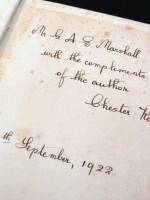 Mr G A E Marshall
with the compliments
of the author
Chester
th September, 1922